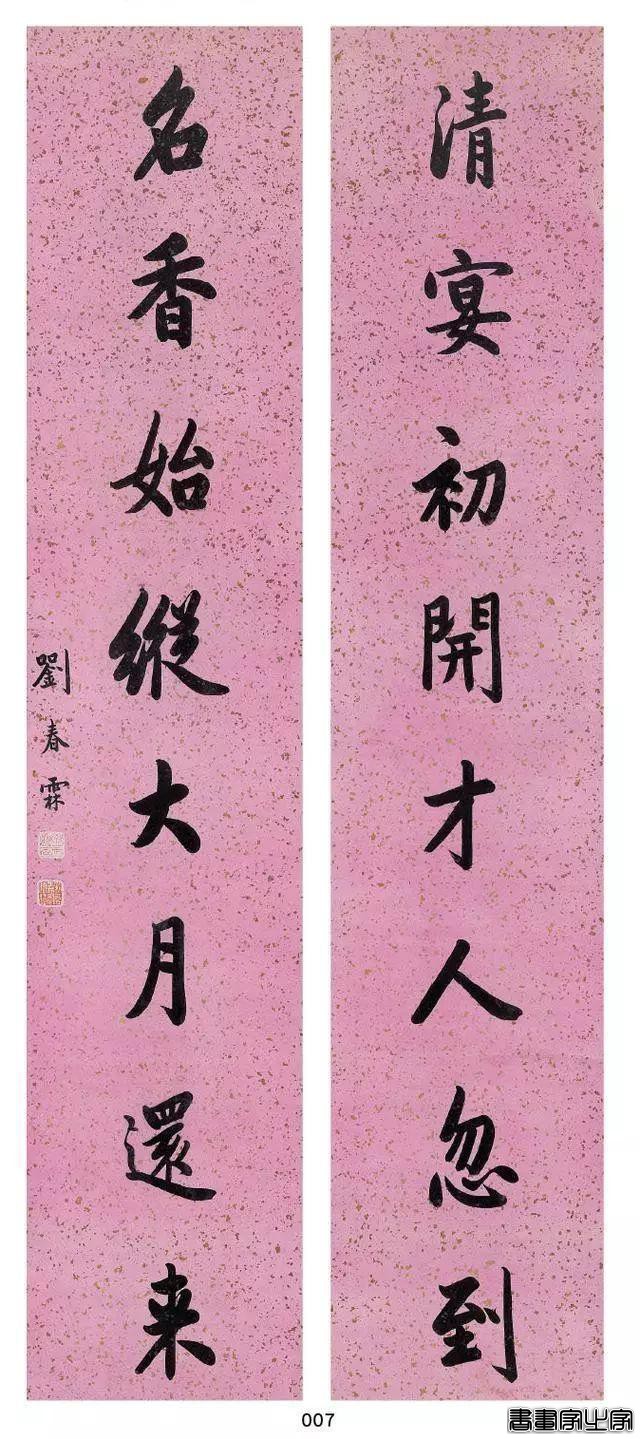 清宴初開才人忽到
名香始縱大月還来
劉春霖
007
書畫家之家